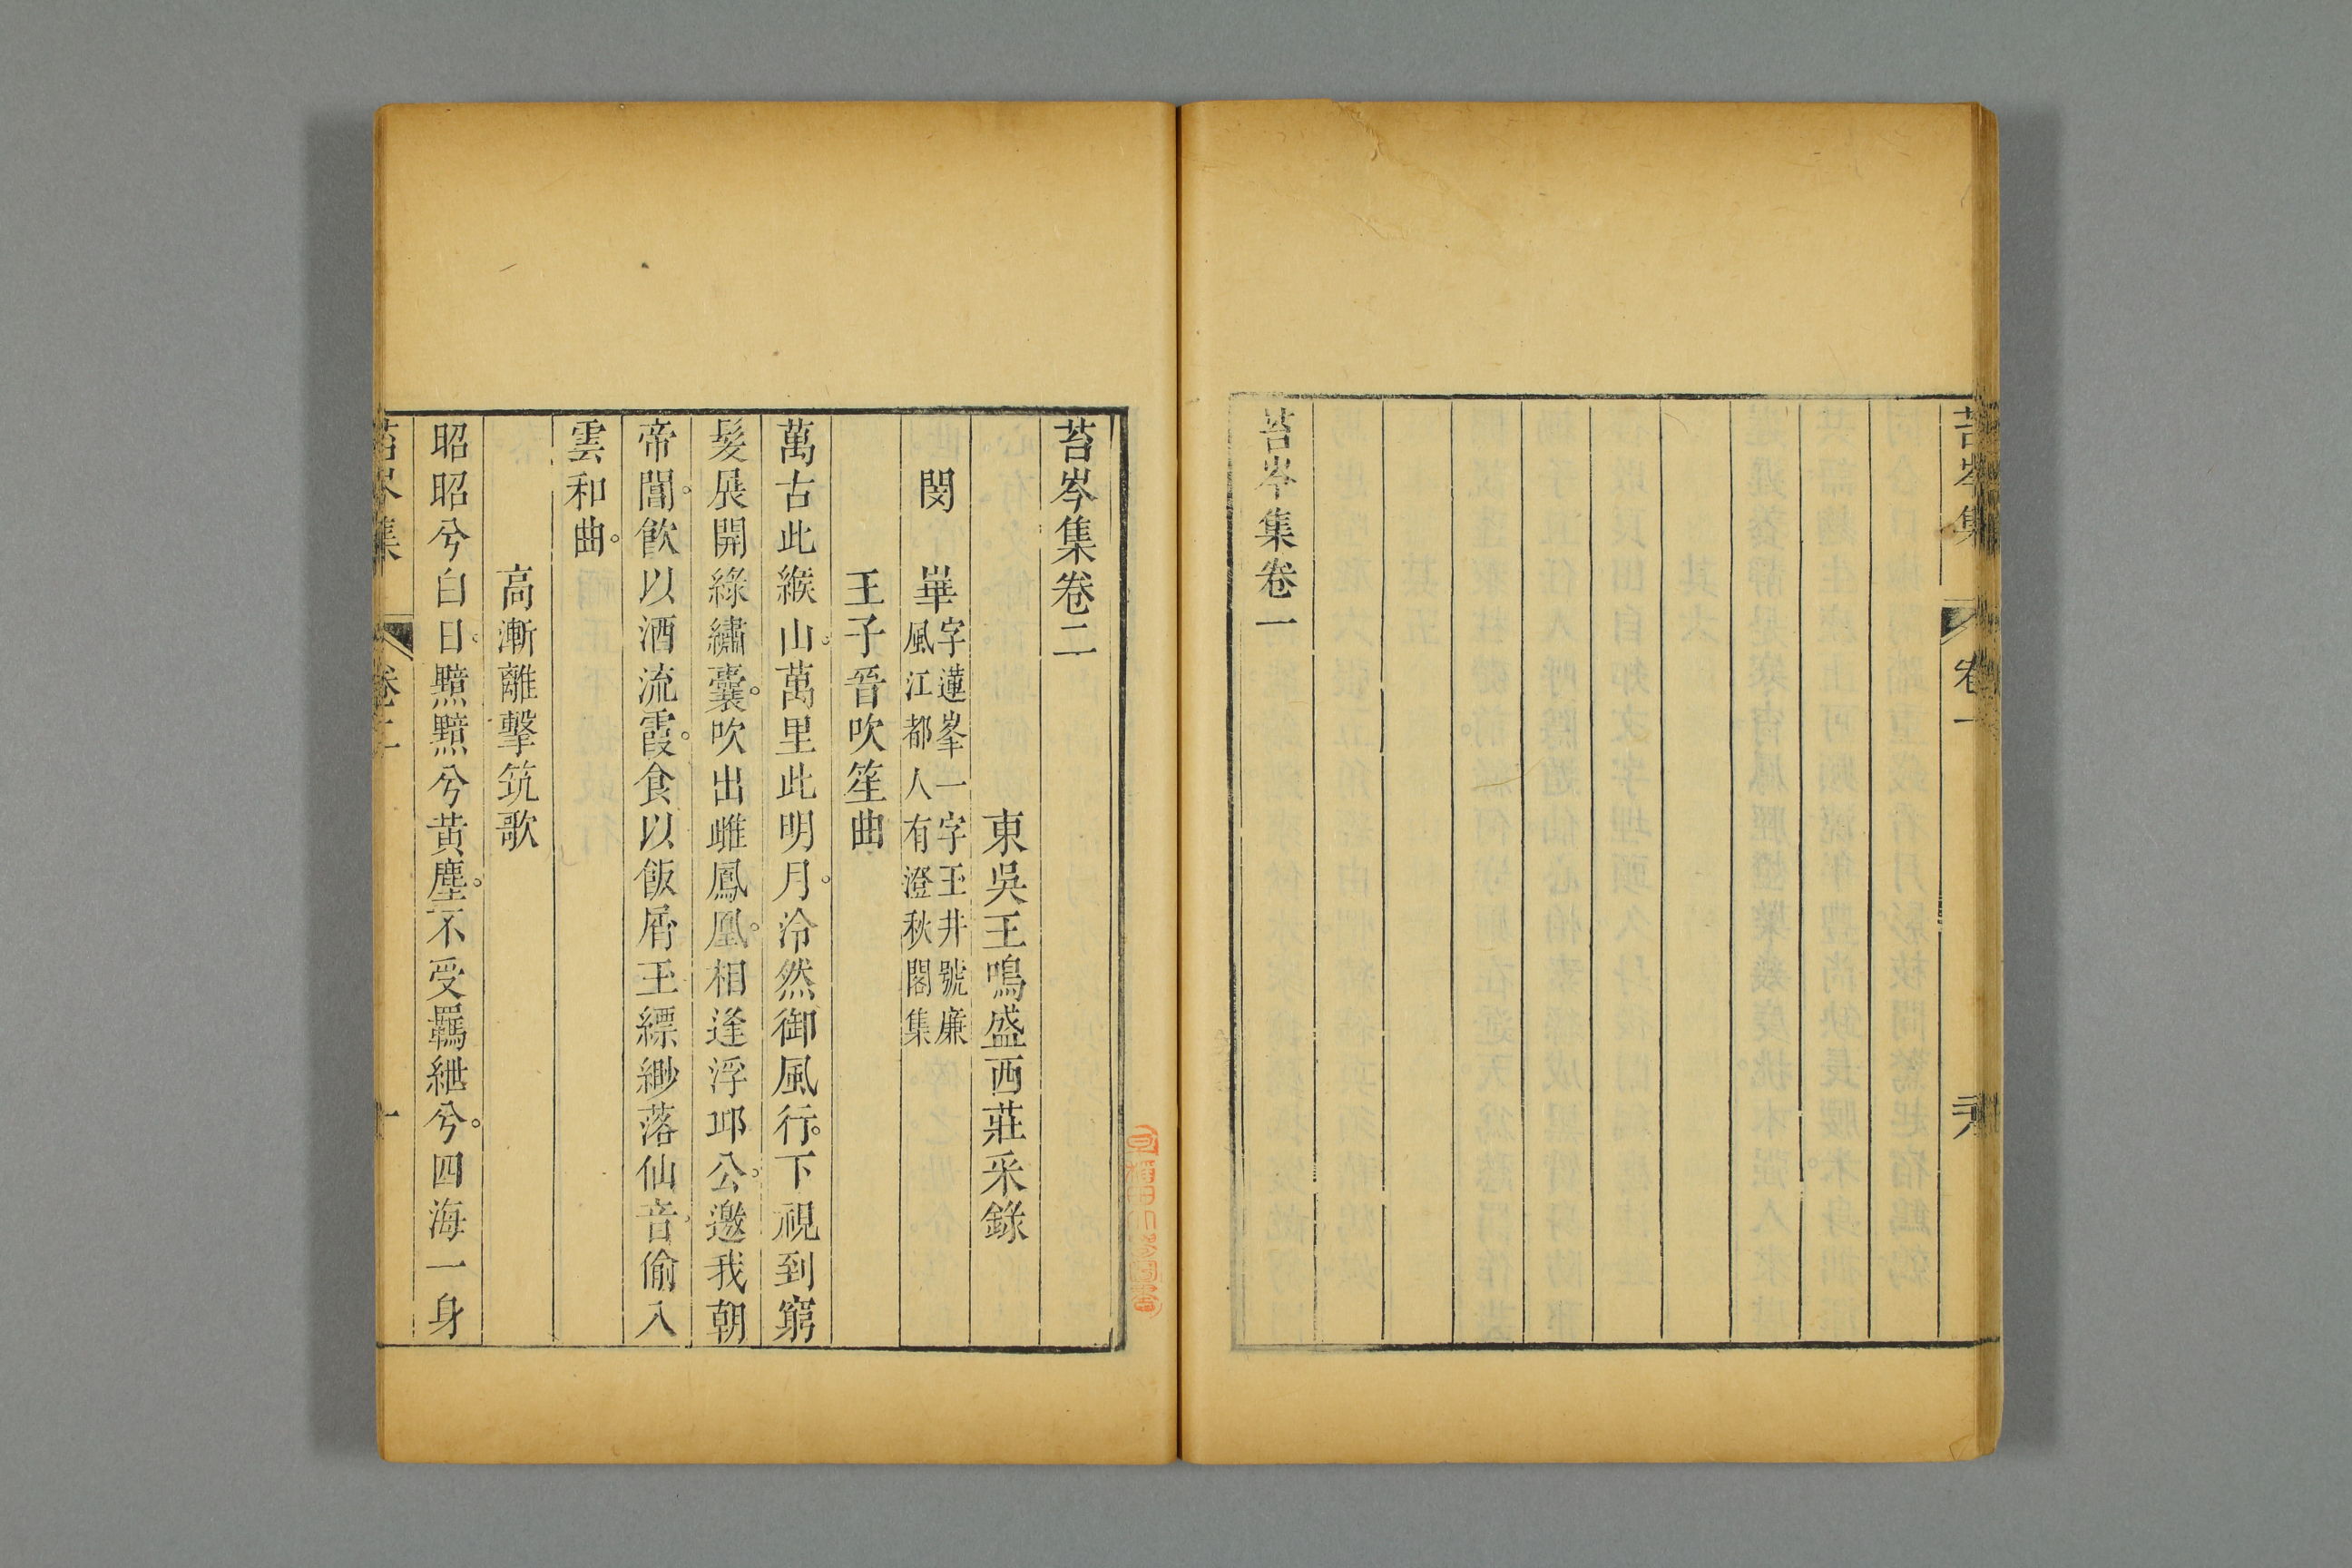 苔岑集
卷一
苔岑集卷一
苔岑集卷二
東吳王鳴盛西莊采錄
閔 崋字蓮峯一字玉井號廉
風江都人有澄秋閣集
王子晉吹笙曲
萬古此緱山。萬里此明月。泠然御風行。下視到窮
髮。展開綠繡囊。吹出雌鳳凰。相逢浮邱公。邀我朝
帝閽。飲以酒流霞。食以飯屑玉。縹緲落仙音。偷入
雲和曲。
高漸離擊筑歌
昭昭兮白日。黯黯兮黃塵。不受羈紲兮。四海一身
苔岑集
卷二
一